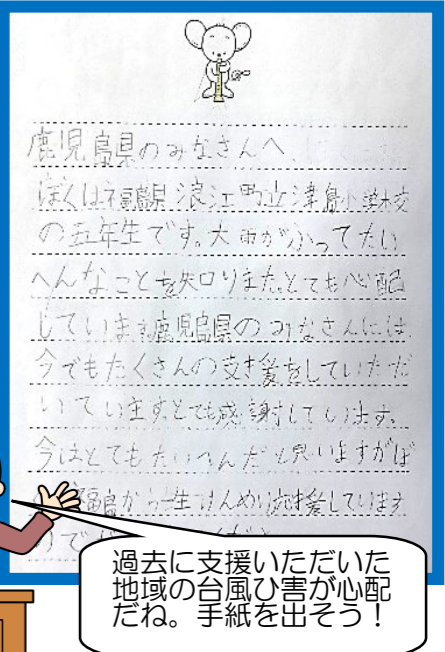 鹿児島県のみなさんへ
ぼくは福島県浪江町立津島小学校
の五年生です。大雨がふってたい
へんなことを知りまた。とても心配
しています。鹿児島県のみなさんには
今でもたくさんの支援をしていただ
いています。とても感謝しています。
今はとてもたいへんだと思いますがぼ
福島から一生けんめい応援しています
ので
過去に支援いただいた
地域の台風ひ害が心配
だね。手紙を出そう！